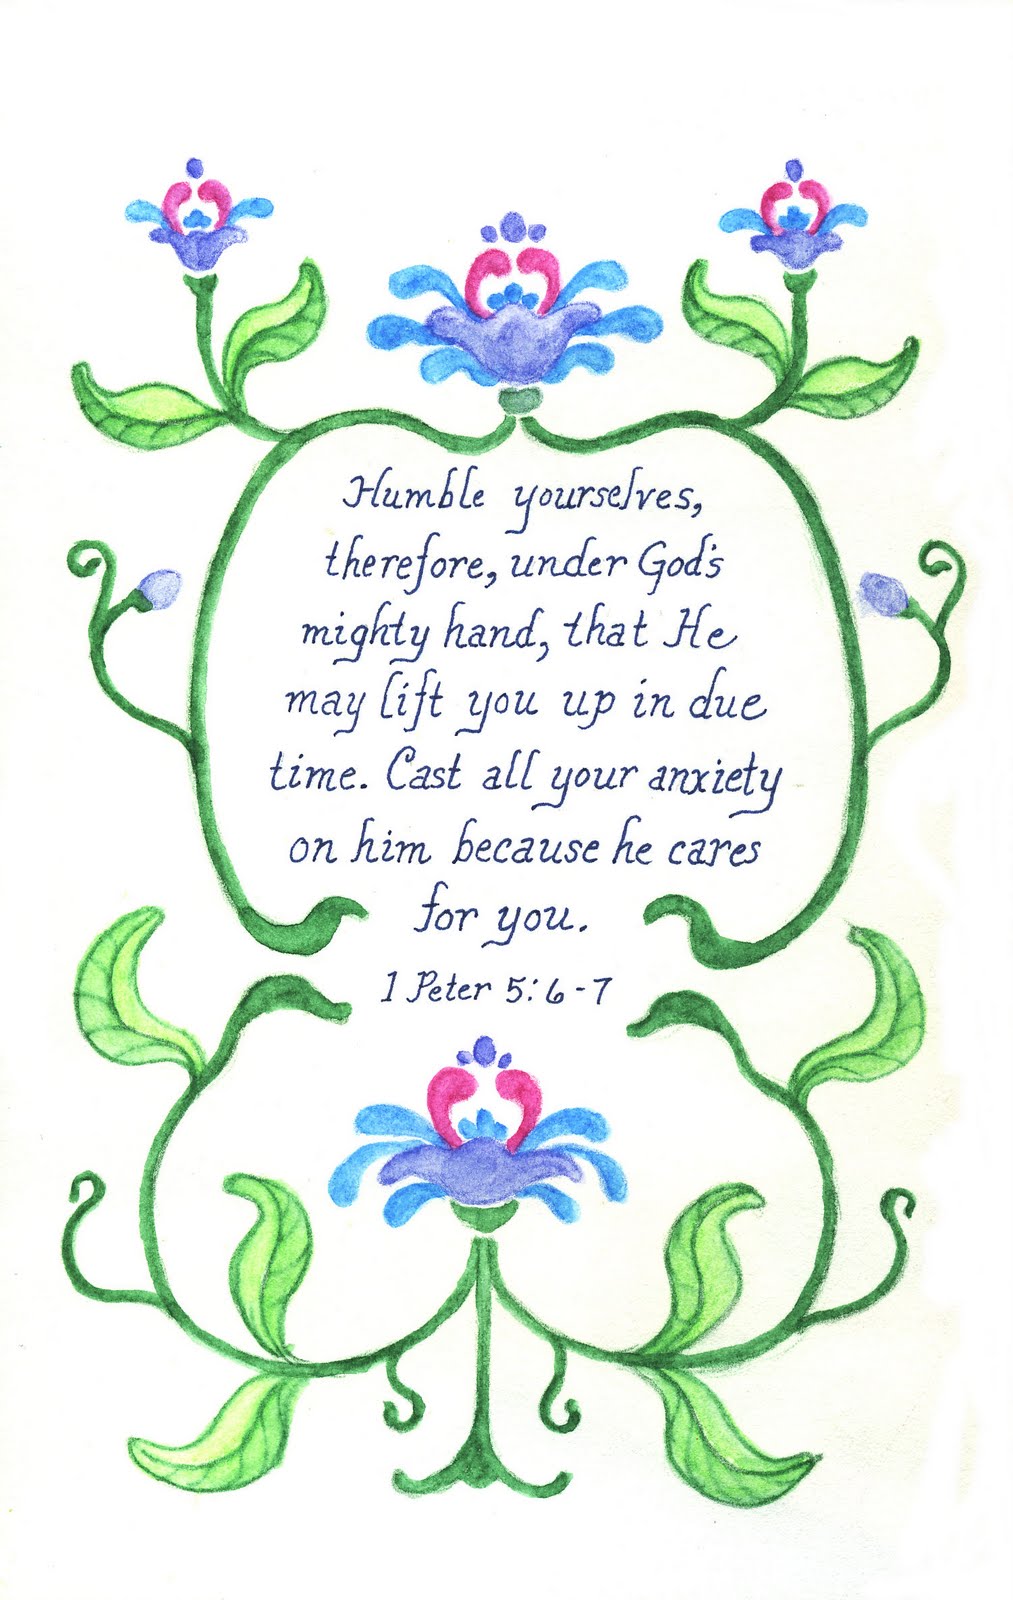 Humble yourselves,
therefore, under God's
mighty hand, that He
may lift you up in due
time. Cast all your anxiety
on him because he cares
for you.
1 Peter 5:6-7